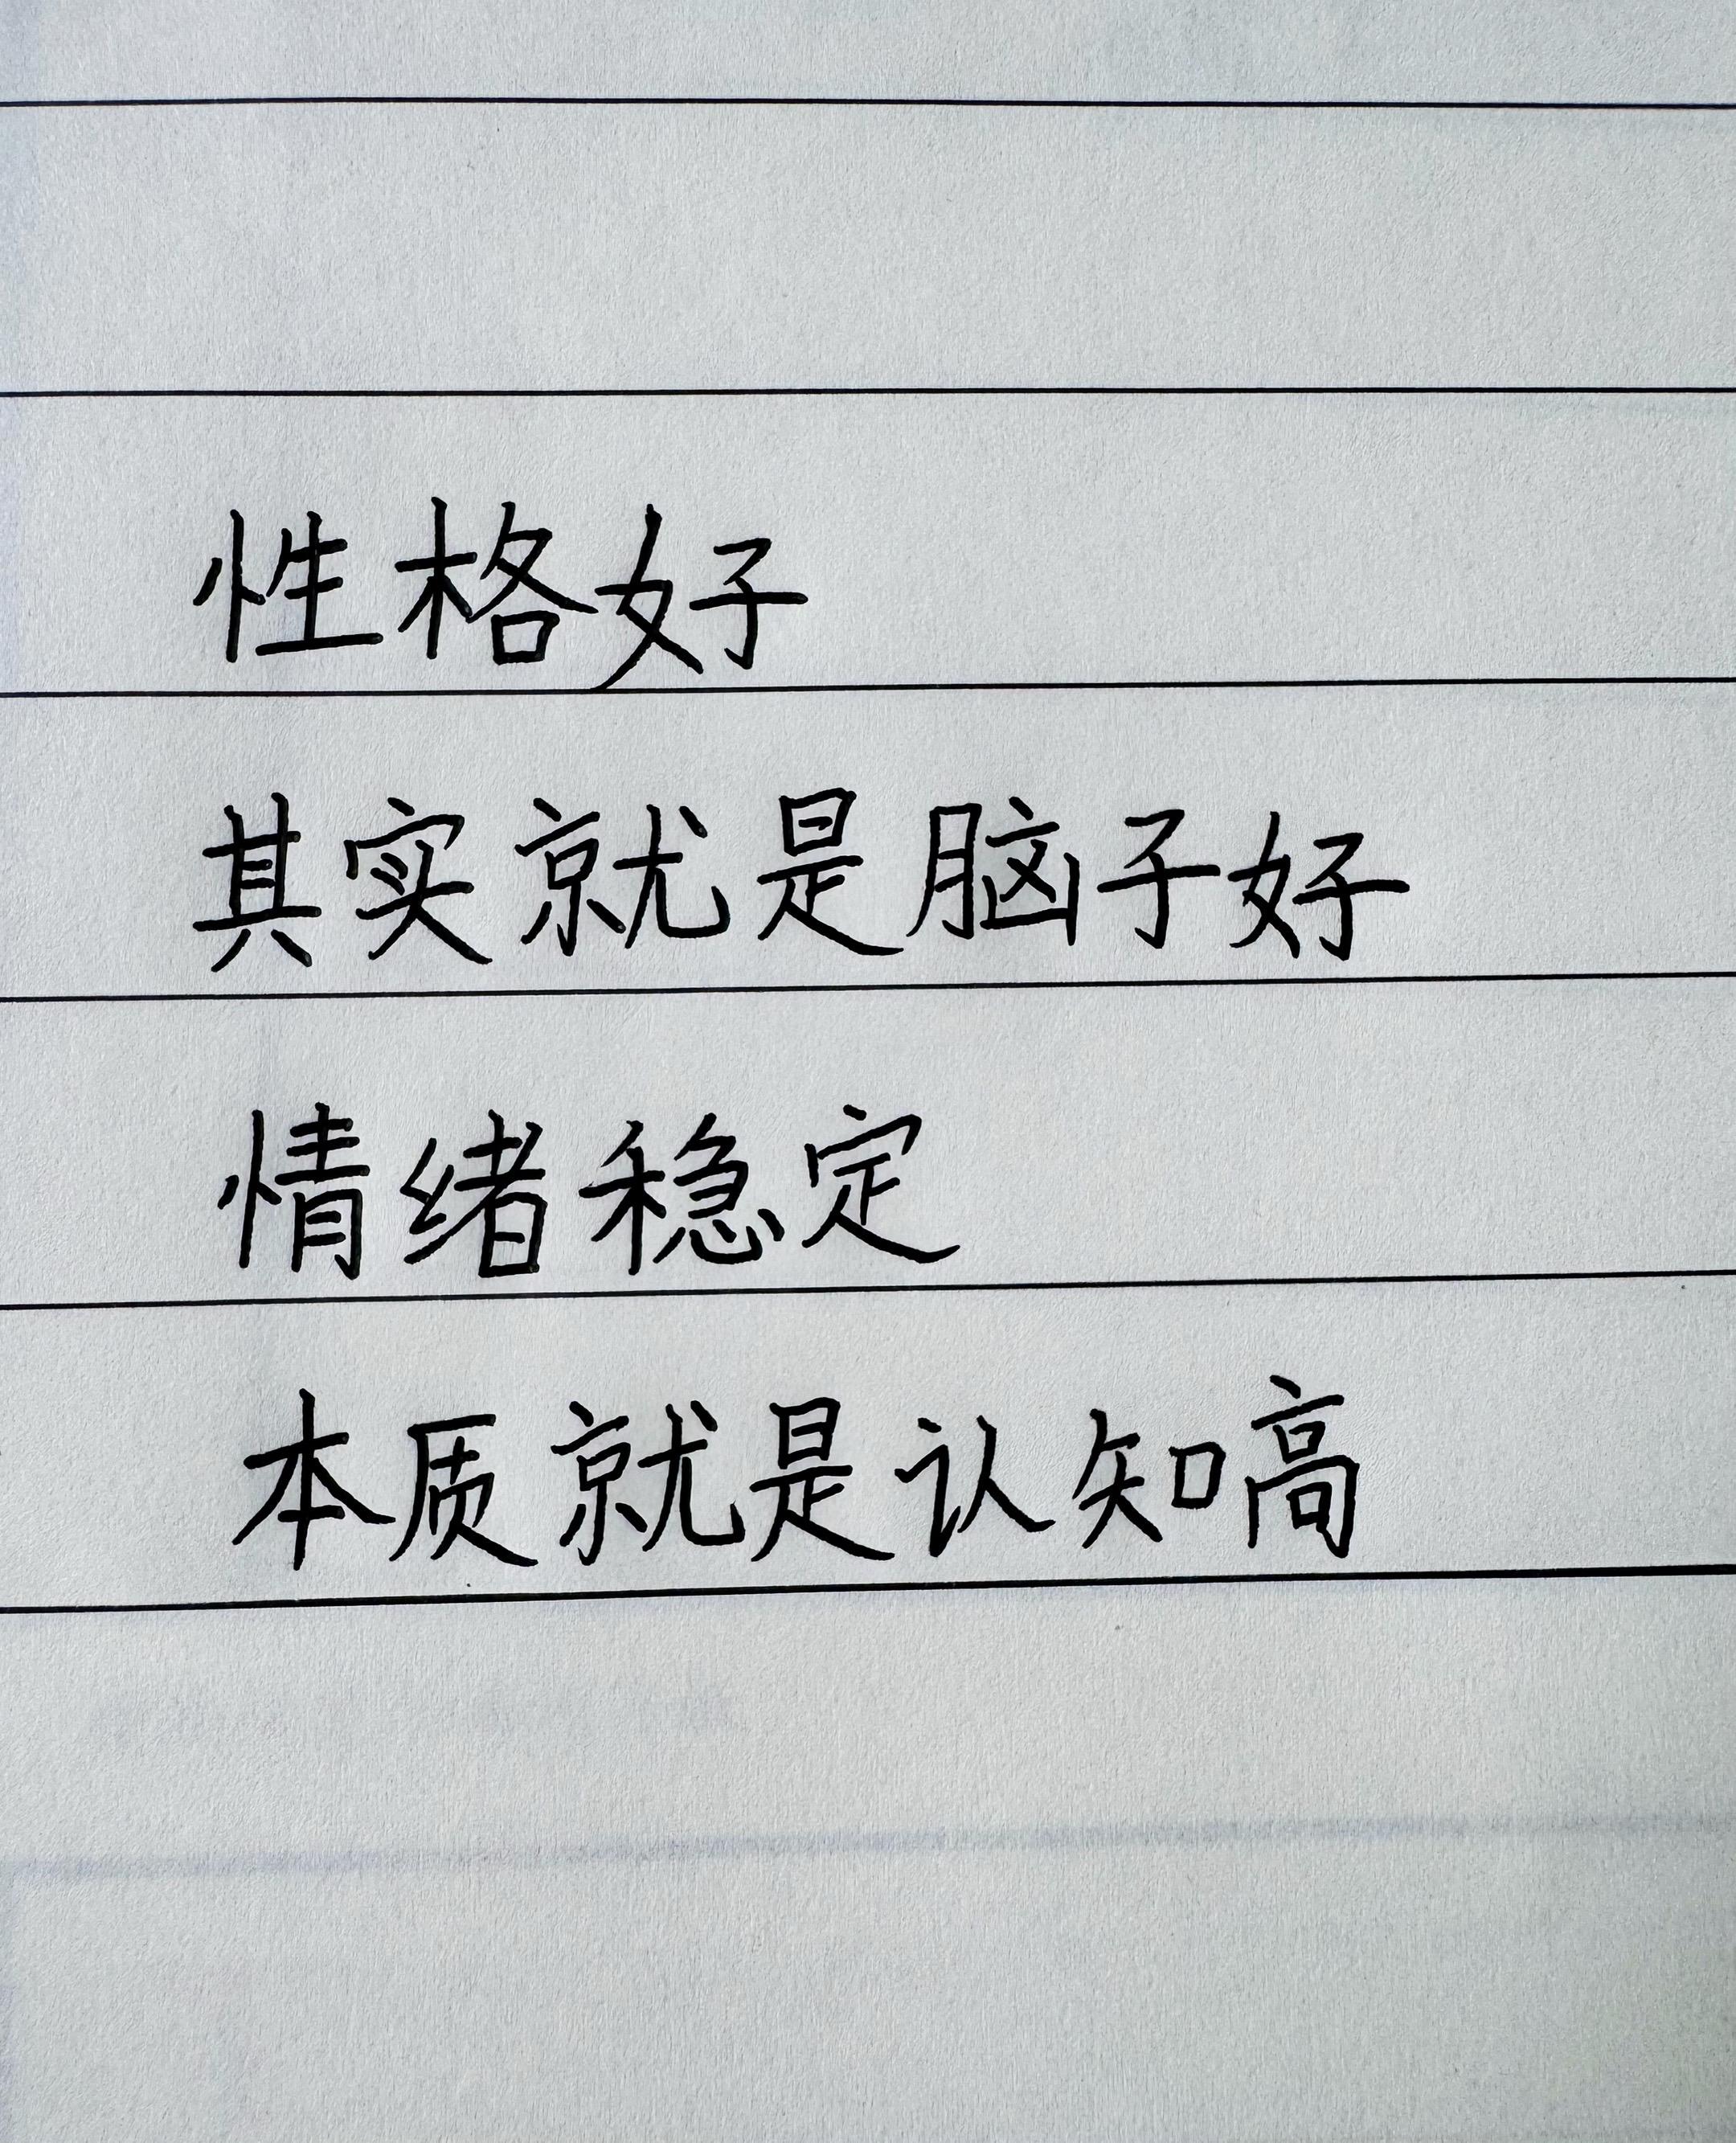 性格好
其实就是脑子好
情绪稳定
本质就是认知高